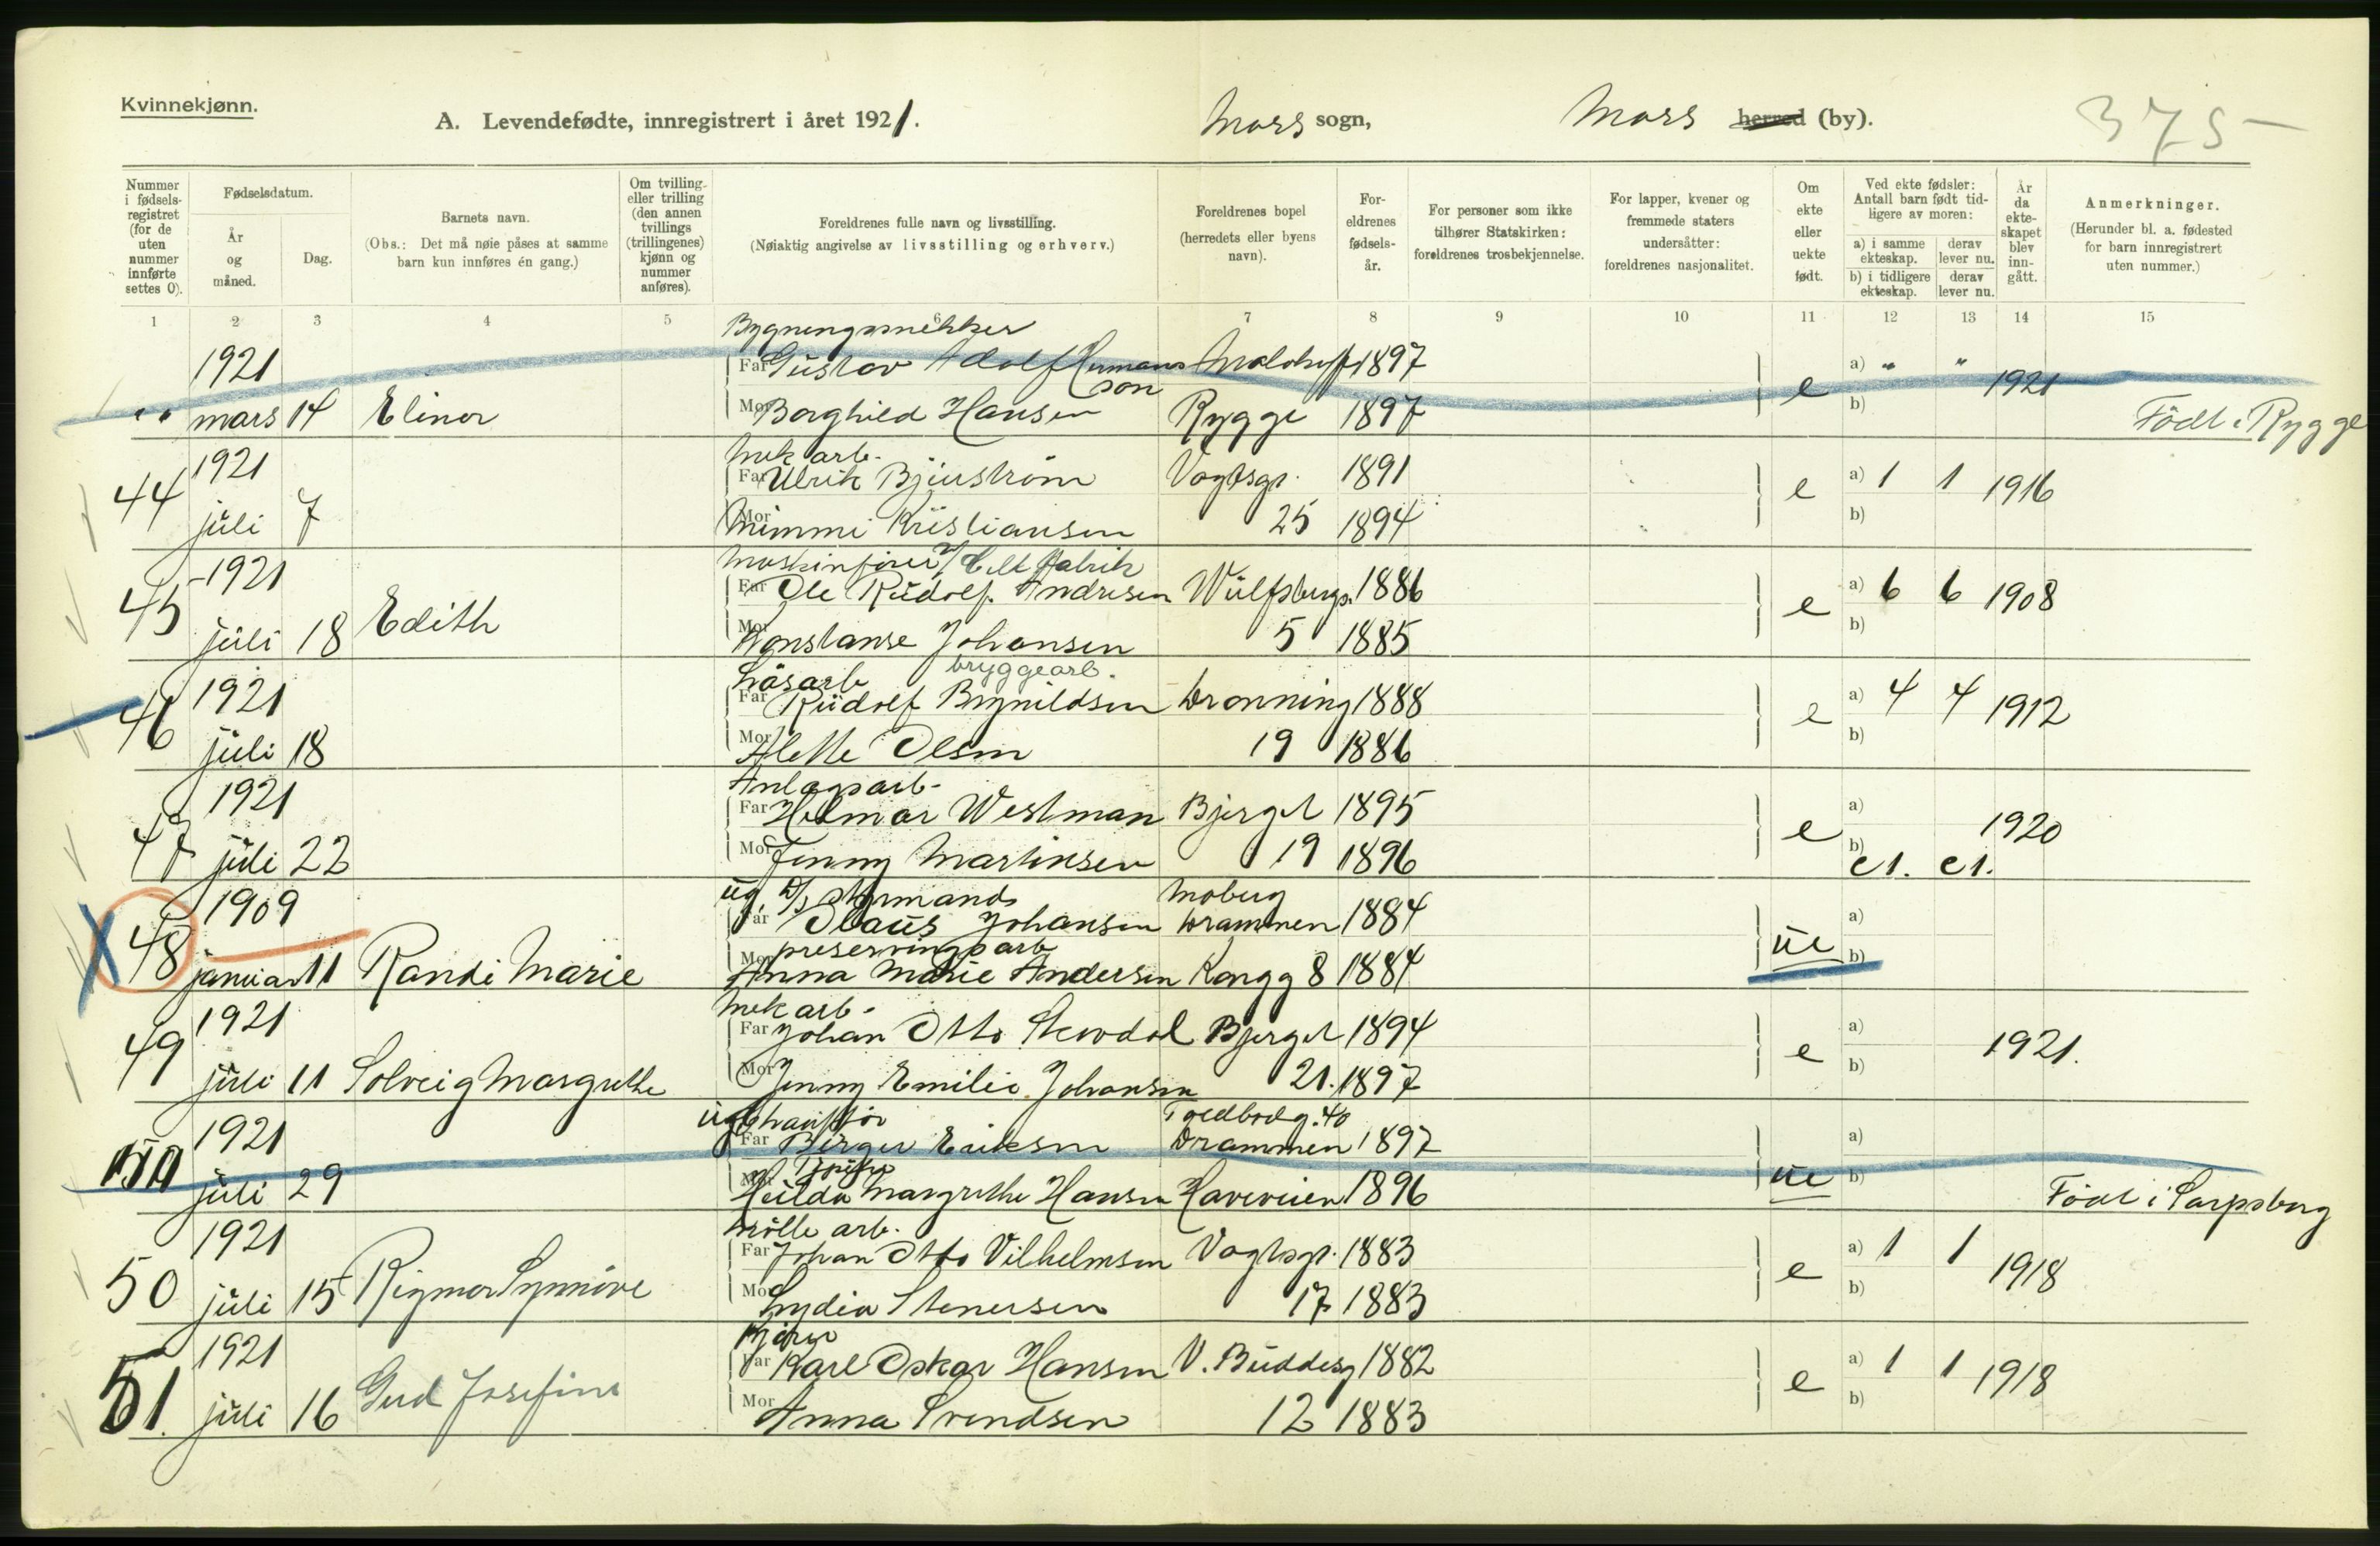 Kvinnekjønn.
A. Levendefødte, innregistrert i året 1921. Moss sogn, Moss herred (by). 375-
Nummer i fødselsregistret (for de uten nummer innførte settes 0).
Fødselsdatum.
År og måned.
Dag.
Barnets navn.
(Obs.: Det må nøie påses at samme barn kun innføres én gang.)
Om tvilling- eller trilling (den annen tvillings (trillingenes) kjønn og nummer anføres).
Foreldrenes fulle navn og livsstilling.
(Nøiaktig angivelse av livsstilling og erhverv.)
Foreldrenes bopel (herredets eller byens navn).
Foreldrenes fødselsår.
For personer som ikke tilhører Statskirken: foreldrenes trosbekjennelse.
For lapper, kvener og fremmede staters undersåtter: foreldrenes nasjonalitet.
Om ekte eller uekte født.
Ved ekte fødsler: Antall barn født tidligere av moren:
a) i samme ekteskap. derav lever nu.
b) i tidligere ekteskap. derav lever nu.
År da ekteskapet blev inngått.
Anmerkninger.
(Herunder bl. a. fødested for barn innregistrert uten nummer.)
1 2 3 4 5 6 7 8 9 10 11 12 13 14 15
Bygningssnekker
1921 Far Gustav Adolf Hermansson 1897 e a) " " 1921
" mars 14 Elinor Mor Borghild Hansen Rygge 1897 b) Födt i Rygge
Mek arb.
44 1921 Far Ulrik Bjurström Vogtsgt. 1891 e a) 1 1 1916
juli 7 Mor Mimmi Kristiansen 25 1894 b)
Maskinfører v/ Fabrik
45 1921 Far Ole Rudolf Andresen Wulfsbergs. 1886 e a) 6 6 1908
juli 18 Edith Mor Konstanse Johansen 5 1885 b)
Løsarb bryggearb.
46 1921 Far Rudolf Brynildsen Dronning 1888 e a) 4 4 1912
juli 18 Mor Alette Olsen 19 1886 b)
Anlægsarb.
47 1921 Far Helmar Westman Bjerget 1895 e a) 1920
juli 22 Mor Jenny Martinsen 19 1896 b) e1. e1.
ug. styrmand Moberg
48 1909 Far Olaus Johansen Drammen 1884 ue a)
januar 11 Randi Marie preservingsarb Mor Anna Marie Andersen Kongg 8 1884 b)
Mek arb.
49 1921 Far Johan Otto Bjerget 1894 e a) 1921.
juli 11 Solveig Margrethe Mor Jenny Emilie Johansen 21. 1897 b)
ug Chauffør Toldbodg. 40
1921 Far Birger Eriksen Drammen 1897 ue a)
juli 29 Mor Hilda Margrethe Hansen Haveveien 1896 b) Födt i Sarpsborg
Mölle arb.
50 1921 Far Johan Otto Vilhelmsen Vogtsgt. 1883 e a) 1 1 1918
juli 15 Rigmor Synnöve Mor Lydia Stenersen 17 1883 b)
Kjører
51. 1921 Far Karl Oskar Hansen V. Buddesg 1882 e a) 1 1 1918
juli 16 Gerd Josefine Mor Anna Svendsen 12 1883 b)